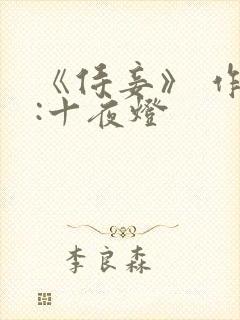 《侍妾》 作
:十夜燈
李良森